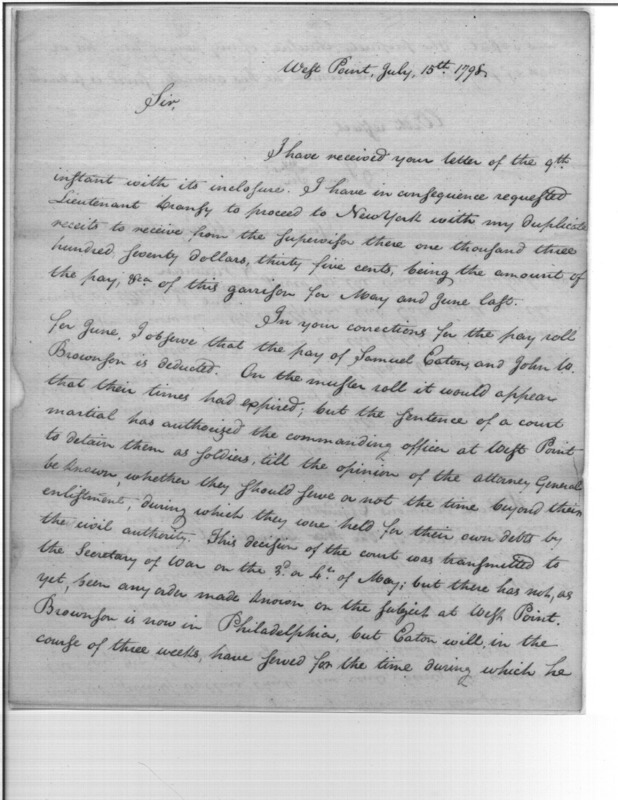 West Point, July, 15th. 1798.
Sir,
I have received your letter of the 9th.
instant with its inclosure. I have in consequence requested
Lieutenant Muhlenberg to proceed to NewYork with my duplicate
receits to receive from the supervisor there one thousand three
hundred, seventy dollars, thirty five cents, being the amount of
the pay, &ca. of this garrison for May and June last.
In your corrections for the pay roll
for June, I observe that the pay of Samuel Eaton, and John W.
Brownson is deducted. On the muster roll it would appear
that their times had expired; but the sentence of a court
martial has authorized the commanding officer at West Point
to detain them as soldiers, till the opinion of the attorney General
be known, whether they should serve or not the time beyond their
enlistment, during which they were held for their own debts by
the civil authority. This decision of the court was transmitted to
the Secretary of War on the 3d. or 4th. of May; but there has not, as
yet, been any order made known on the subject at West Point.
Brownson is now in Philadelphia, but Eaton will, in the
course of three weeks, have served for the time during which he